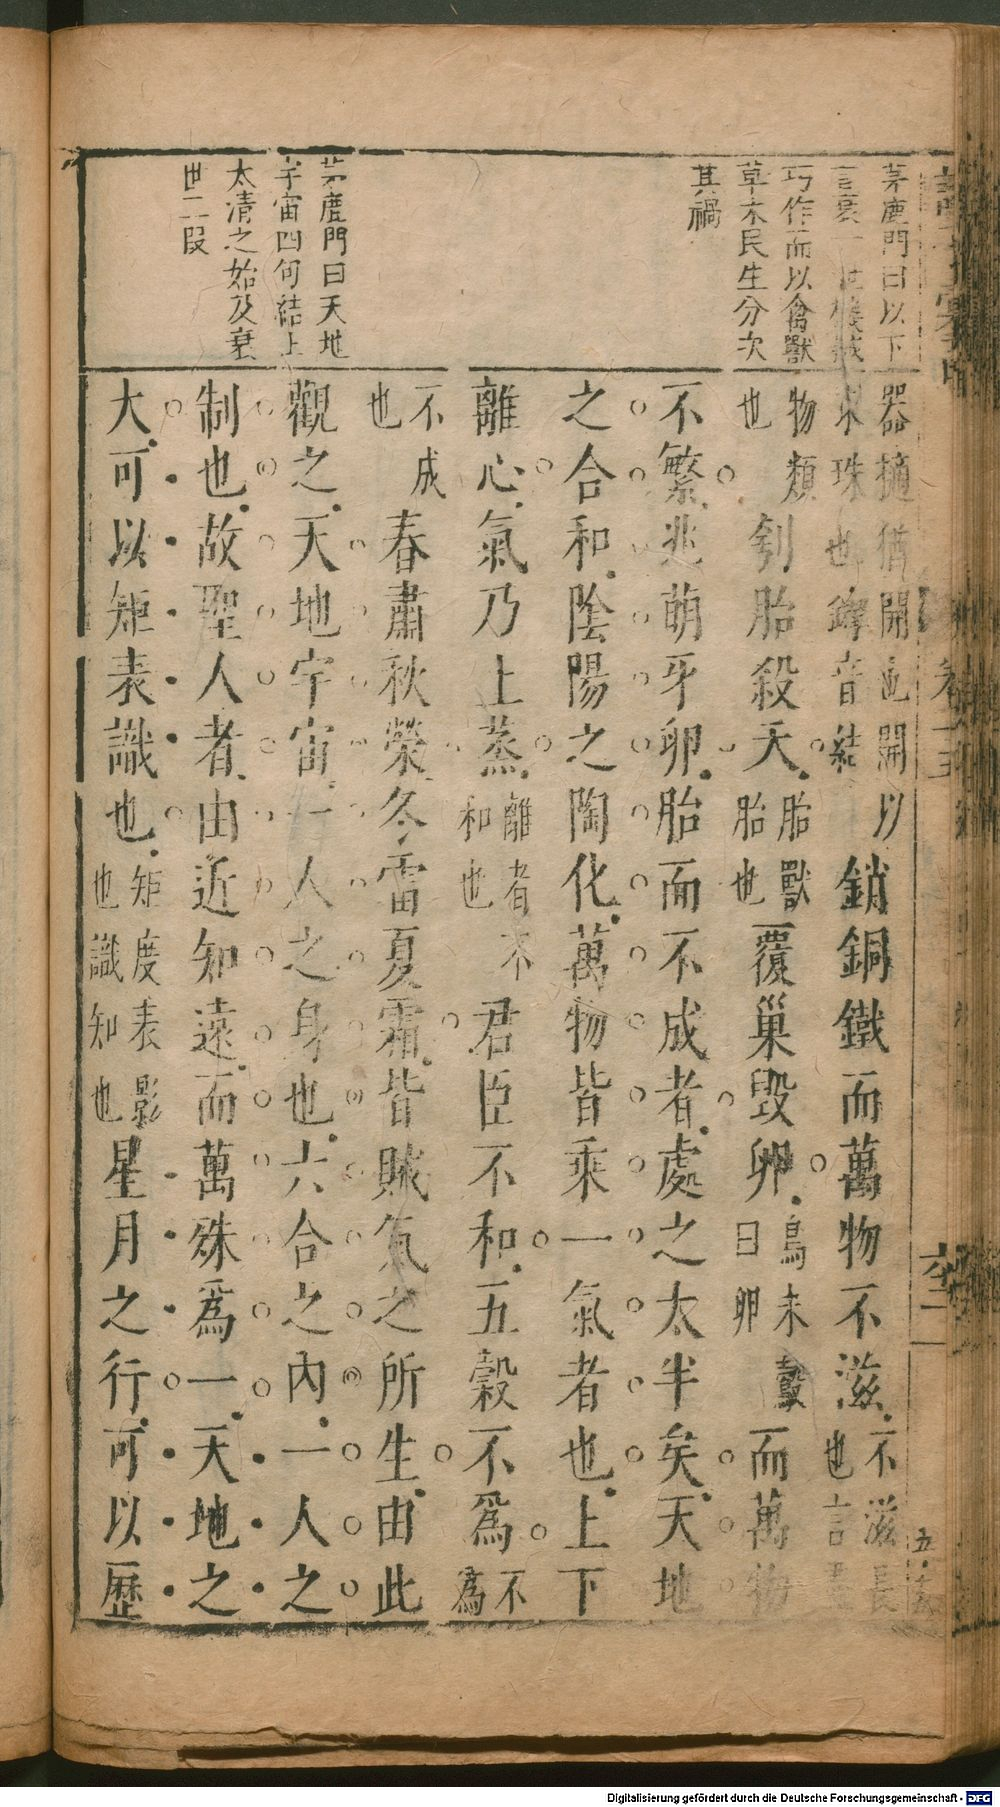 茅鹿門曰以下
言衰世機械
巧作而以禽獸
草木民生分次
其禍
茅鹿門曰天地
宇宙四句結上
太清之始及衰
世二段
器擿猶開也開以
求珠也鐸音結
銷銅鐵而萬物不滋
不滋長
也言
物類
也
刳胎殺夭
胎獸
胎也
覆巢毀卵
鳥未鷇
曰卵
而萬物
不繁兆萌牙卵胎而不成者處之太半矣天地
之合和陰陽之陶化萬物皆乘一氣者也上下
離心氣乃上蒸
離者不
和也
君臣不和五穀不為
不
為
不成
也
春肅秋榮冬雷夏霜皆賊氣之所生由此
觀之天地宇宙一人之身也六合之內一人之
制也故聖人者由近知遠而萬殊為一天地之
大可以矩表識也
矩度表影
也識知也
星月之行可以歷
Digitalisierung gefördert durch die Deutsche Forschungsgemeinschaft - DFG